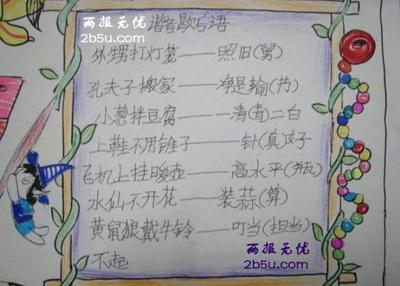 两报无优
2b5u.com
谐音歇后语
外甥打灯笼——照旧(舅)
孔夫子搬家——净是输(书)
小葱拌豆腐——清(青)二白
上鞋不用锥子——针(真)好
飞机上挂暖壶——高水平(瓶)
水仙不开花——装蒜(算)
黄鼠狼戴牛铃——叮当(担当)
不起
两报无优
2b5u.com